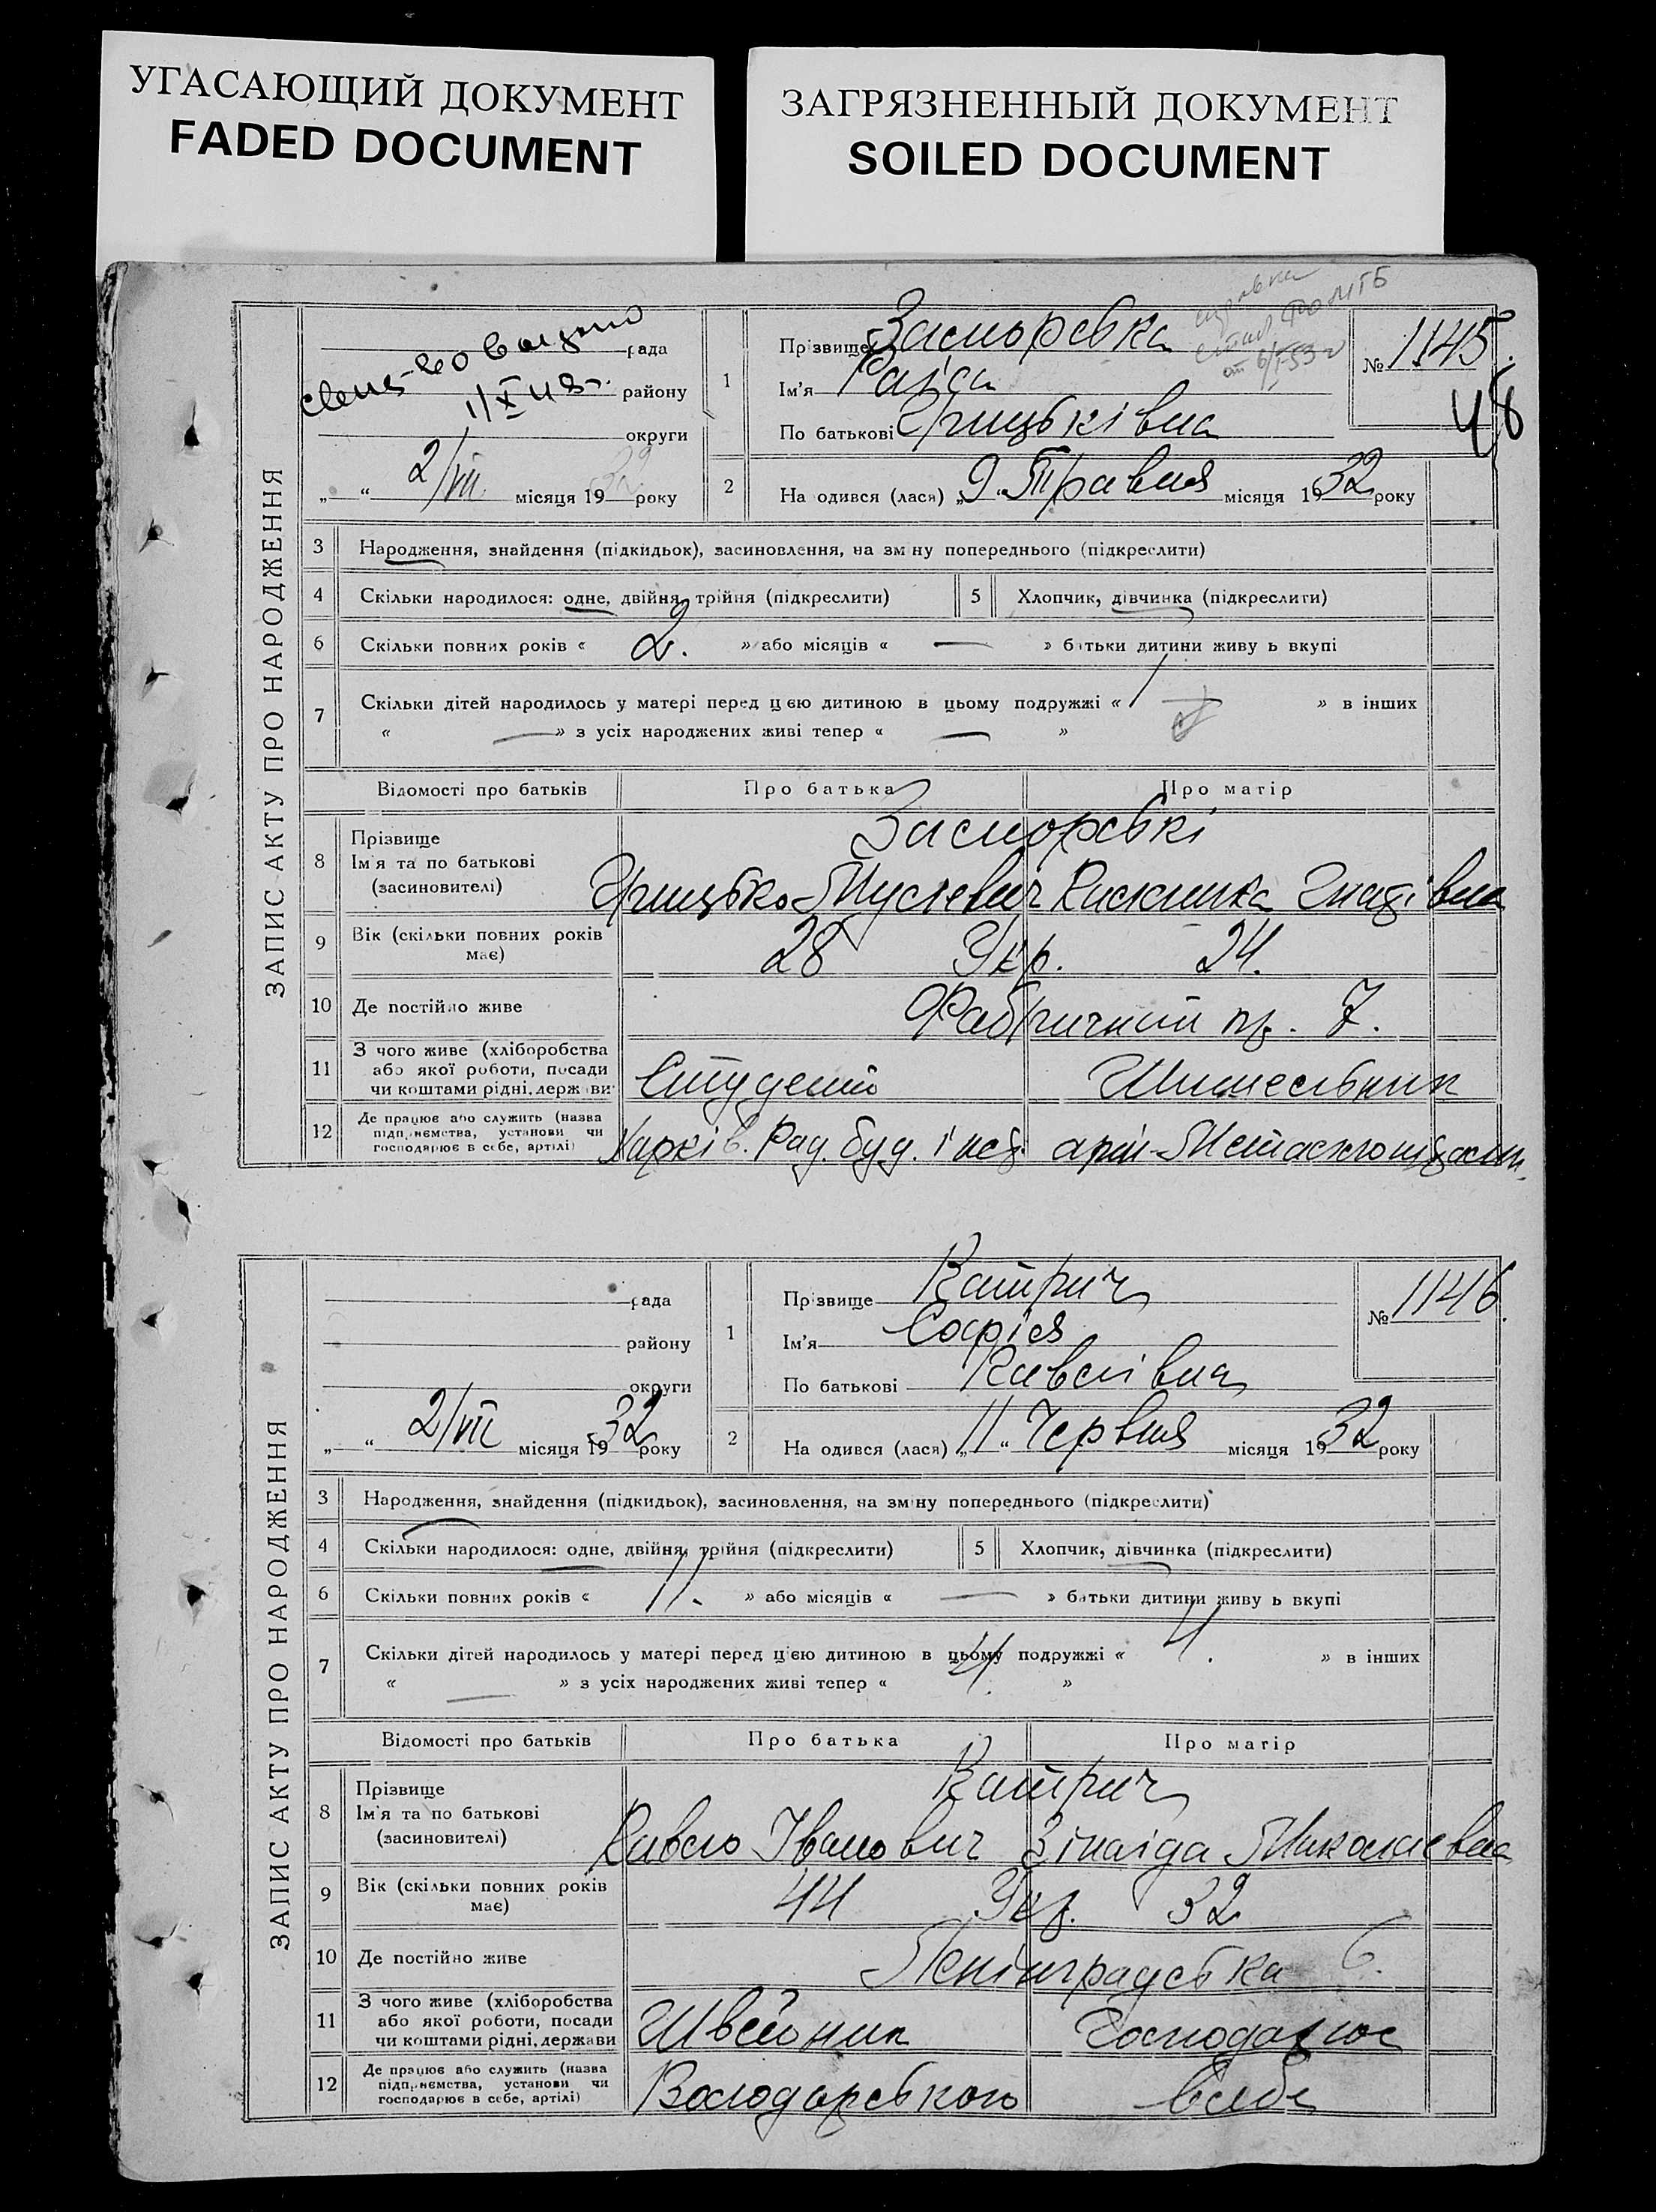 УГАСАЮЩИЙ ДОКУМЕНТ
FADED DOCUMENT
ЗАГРЯЗНЕННЫЙ ДОКУМЕНТ
SOILED DOCUMENT
ЗАПИС АКТУ ПРО НАРОДЖЕННЯ
рада
району
округи
„ “ 2/VII місяця 1932 року
1 Прізвище
Ім'я Раїса
По батькові Грицьківна
№ 1145.
48
2 Народився (лася) „9“ Травня місяця 1932 року
3 Народження, знайдення (підкидьок), засиновлення, на зміну попереднього (підкреслити)
4 Скільки народилося: одне, двійня, трійня (підкреслити) 5 Хлопчик, дівчинка (підкреслити)
6 Скільки повних років « 2. » або місяців « — » батьки дитини живуть вкупі
7 Скільки дітей народилось у матері перед цією дитиною в цьому подружжі « 1 » в інших
« — » з усіх народжених живі тепер « — »
Відомості про батьків Про батька Про матір
8 Прізвище
Ім'я та по батькові
(засиновителі)
Грицько Гнатівна
9 Вік (скільки повних років має) 28 Укр. 24.
10 Де постійно живе Фабричний пр. 7.
11 З чого живе (хліборобства або якої роботи, посади чи коштами рідні, держави Студент
12 Де працює або служить (назва підприємства, установи чи господарює в себе, артілі) Харків. Рад. буд. інст.
ЗАПИС АКТУ ПРО НАРОДЖЕННЯ
рада
району
округи
„ “ 2/VII місяця 1932 року
1 Прізвище Катрич
Ім'я Софія
По батькові Павлівна
№ 1146.
2 Народився (лася) „11“ Червня місяця 1932 року
3 Народження, знайдення (підкидьок), засиновлення, на зміну попереднього (підкреслити)
4 Скільки народилося: одне, двійня, трійня (підкреслити) 5 Хлопчик, дівчинка (підкреслити)
6 Скільки повних років « 11. » або місяців « — » батьки дитини живуть вкупі
7 Скільки дітей народилось у матері перед цією дитиною в цьому подружжі « 4. » в інших
« — » з усіх народжених живі тепер « 4. »
Відомості про батьків Про батька Про матір
8 Прізвище
Ім'я та по батькові
(засиновителі)
Катрич
Павло Іванович Зінаїда Миколаєвна
9 Вік (скільки повних років має) 44 Укр. 32
10 Де постійно живе Ленінградська 6.
11 З чого живе (хліборобства або якої роботи, посади чи коштами рідні, держави Швейник Господарює
12 Де працює або служить (назва підприємства, установи чи господарює в себе, артілі) Володарського в себе